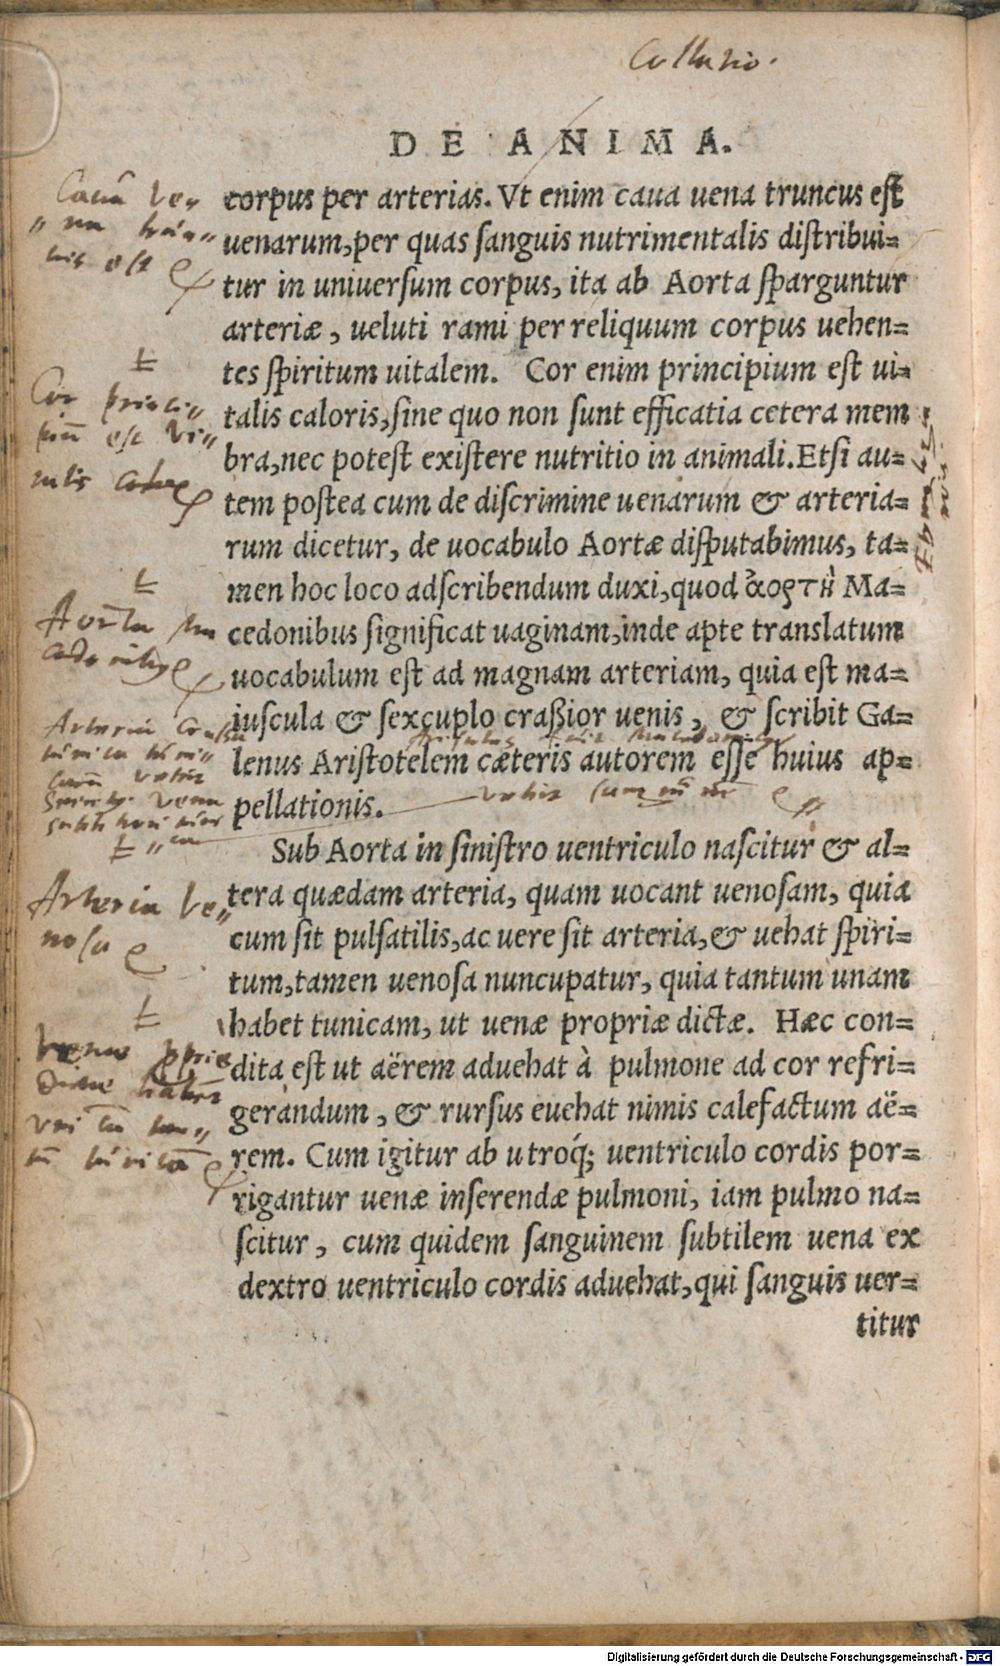 Collatio.
DE ANIMA.
corpus per arterias. Vt enim caua uena truncus est
uenarum, per quas sanguis nutrimentalis distribui=
tur in uniuersum corpus, ita ab Aorta sparguntur
arteriæ, ueluti rami per reliquum corpus uehen=
tes spiritum uitalem. Cor enim principium est ui=
talis caloris, sine quo non sunt efficatia cetera mem
bra, nec potest existere nutritio in animali. Etsi au=
tem postea cum de discrimine uenarum & arteria=
rum dicetur, de uocabulo Aortæ disputabimus, ta=
men hoc loco adscribendum duxi, quod ἀορτὴ Ma=
cedonibus significat uaginam, inde apte translatum
uocabulum est ad magnam arteriam, quia est ma=
iuscula & sexcuplo craßior uenis, & scribit Ga=
lenus Aristotelem cæteris autorem esse huius ap=
pellationis.
Sub Aorta in sinistro uentriculo nascitur & al=
tera quædam arteria, quam uocant uenosam, quia
cum sit pulsatilis, ac uere sit arteria, & uehat spiri=
tum, tamen uenosa nuncupatur, quia tantum unam
habet tunicam, ut uenæ propriæ dictæ. Hæc con=
dita est ut aërem aduehat à pulmone ad cor refri=
gerandum, & rursus euehat nimis calefactum aë=
rem. Cum igitur ab utroq́; uentriculo cordis por=
rigantur uenæ inserendæ pulmoni, iam pulmo na=
scitur, cum quidem sanguinem subtilem uena ex
dextro uentriculo cordis aduehat, qui sanguis uer=
titur
Cor princi"
est vi"
Aorta
Arteria
Arteria ve"
nosa
Digitalisierung gefördert durch die Deutsche Forschungsgemeinschaft - DFG